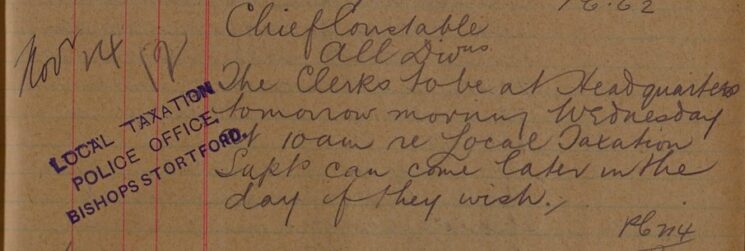 PC 62
Chief Constable
All Divns
Novr 24
The Clerks to be at Headquarters
tomorrow morning Wednesday
at 10am re Local Taxation
Supts can come later in the
day if they wish.,
LOCAL TAXATION
POLICE OFFICE,
BISHOPS STORTFORD.